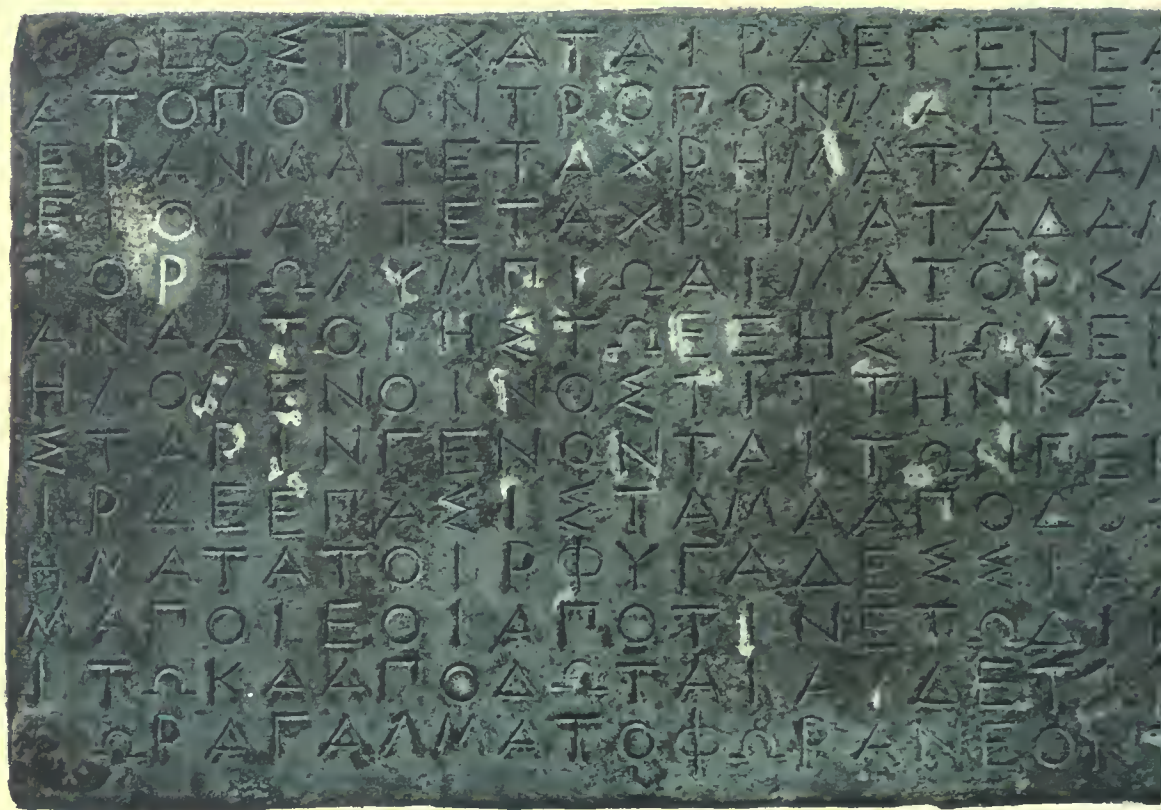 ΘΕΟΣΤΥΧΑΤΑΙΡΔΕΓΕΝΕΑ
ΑΤΟΠΟΙΟΝΤΡΟΠΟΝΜΑΤΕΕΡ
ΕΡΑΝΜΑΤΕΤΑΧΡΗΜΑΤΑΔΑΜ
ΕΙΟΙΑΙΤΕΤΑΧΡΗΜΑΤΑΔΑΜ
ΙΟΡΤΩΛΥΜΠΙΩΑΙΜΑΤΟΡΚΑ
ΑΝΑΑΤΟΡΗΣΤΩΕΞΗΣΤΩΔΕΚ
ΗΛΟΜΕΝΟΙΝΟΣΤΙΤΤΗΝΚΑ
ΣΤΑΡΙΝΓΕΝΩΝΤΑΙΤΩΝΠΕΡ
ΙΡΔΕΕΠΑΣΙΣΤΑΜΑΑΠΟΔΟ
ΗΜΑΤΑΤΟΙΡΦΥΓΑΔΕΣΣΙΑ
ΜΑΠΟΙΕΟΙΑΠΟΤΙΝΕΤΩΔΙΠ
ΙΤΩΚΑΑΠΟΔΩΤΑΙΑΙΔΕΤΙ
ΩΡΑΓΑΛΜΑΤΟΦΩΡΑΝΕΟΝΤ